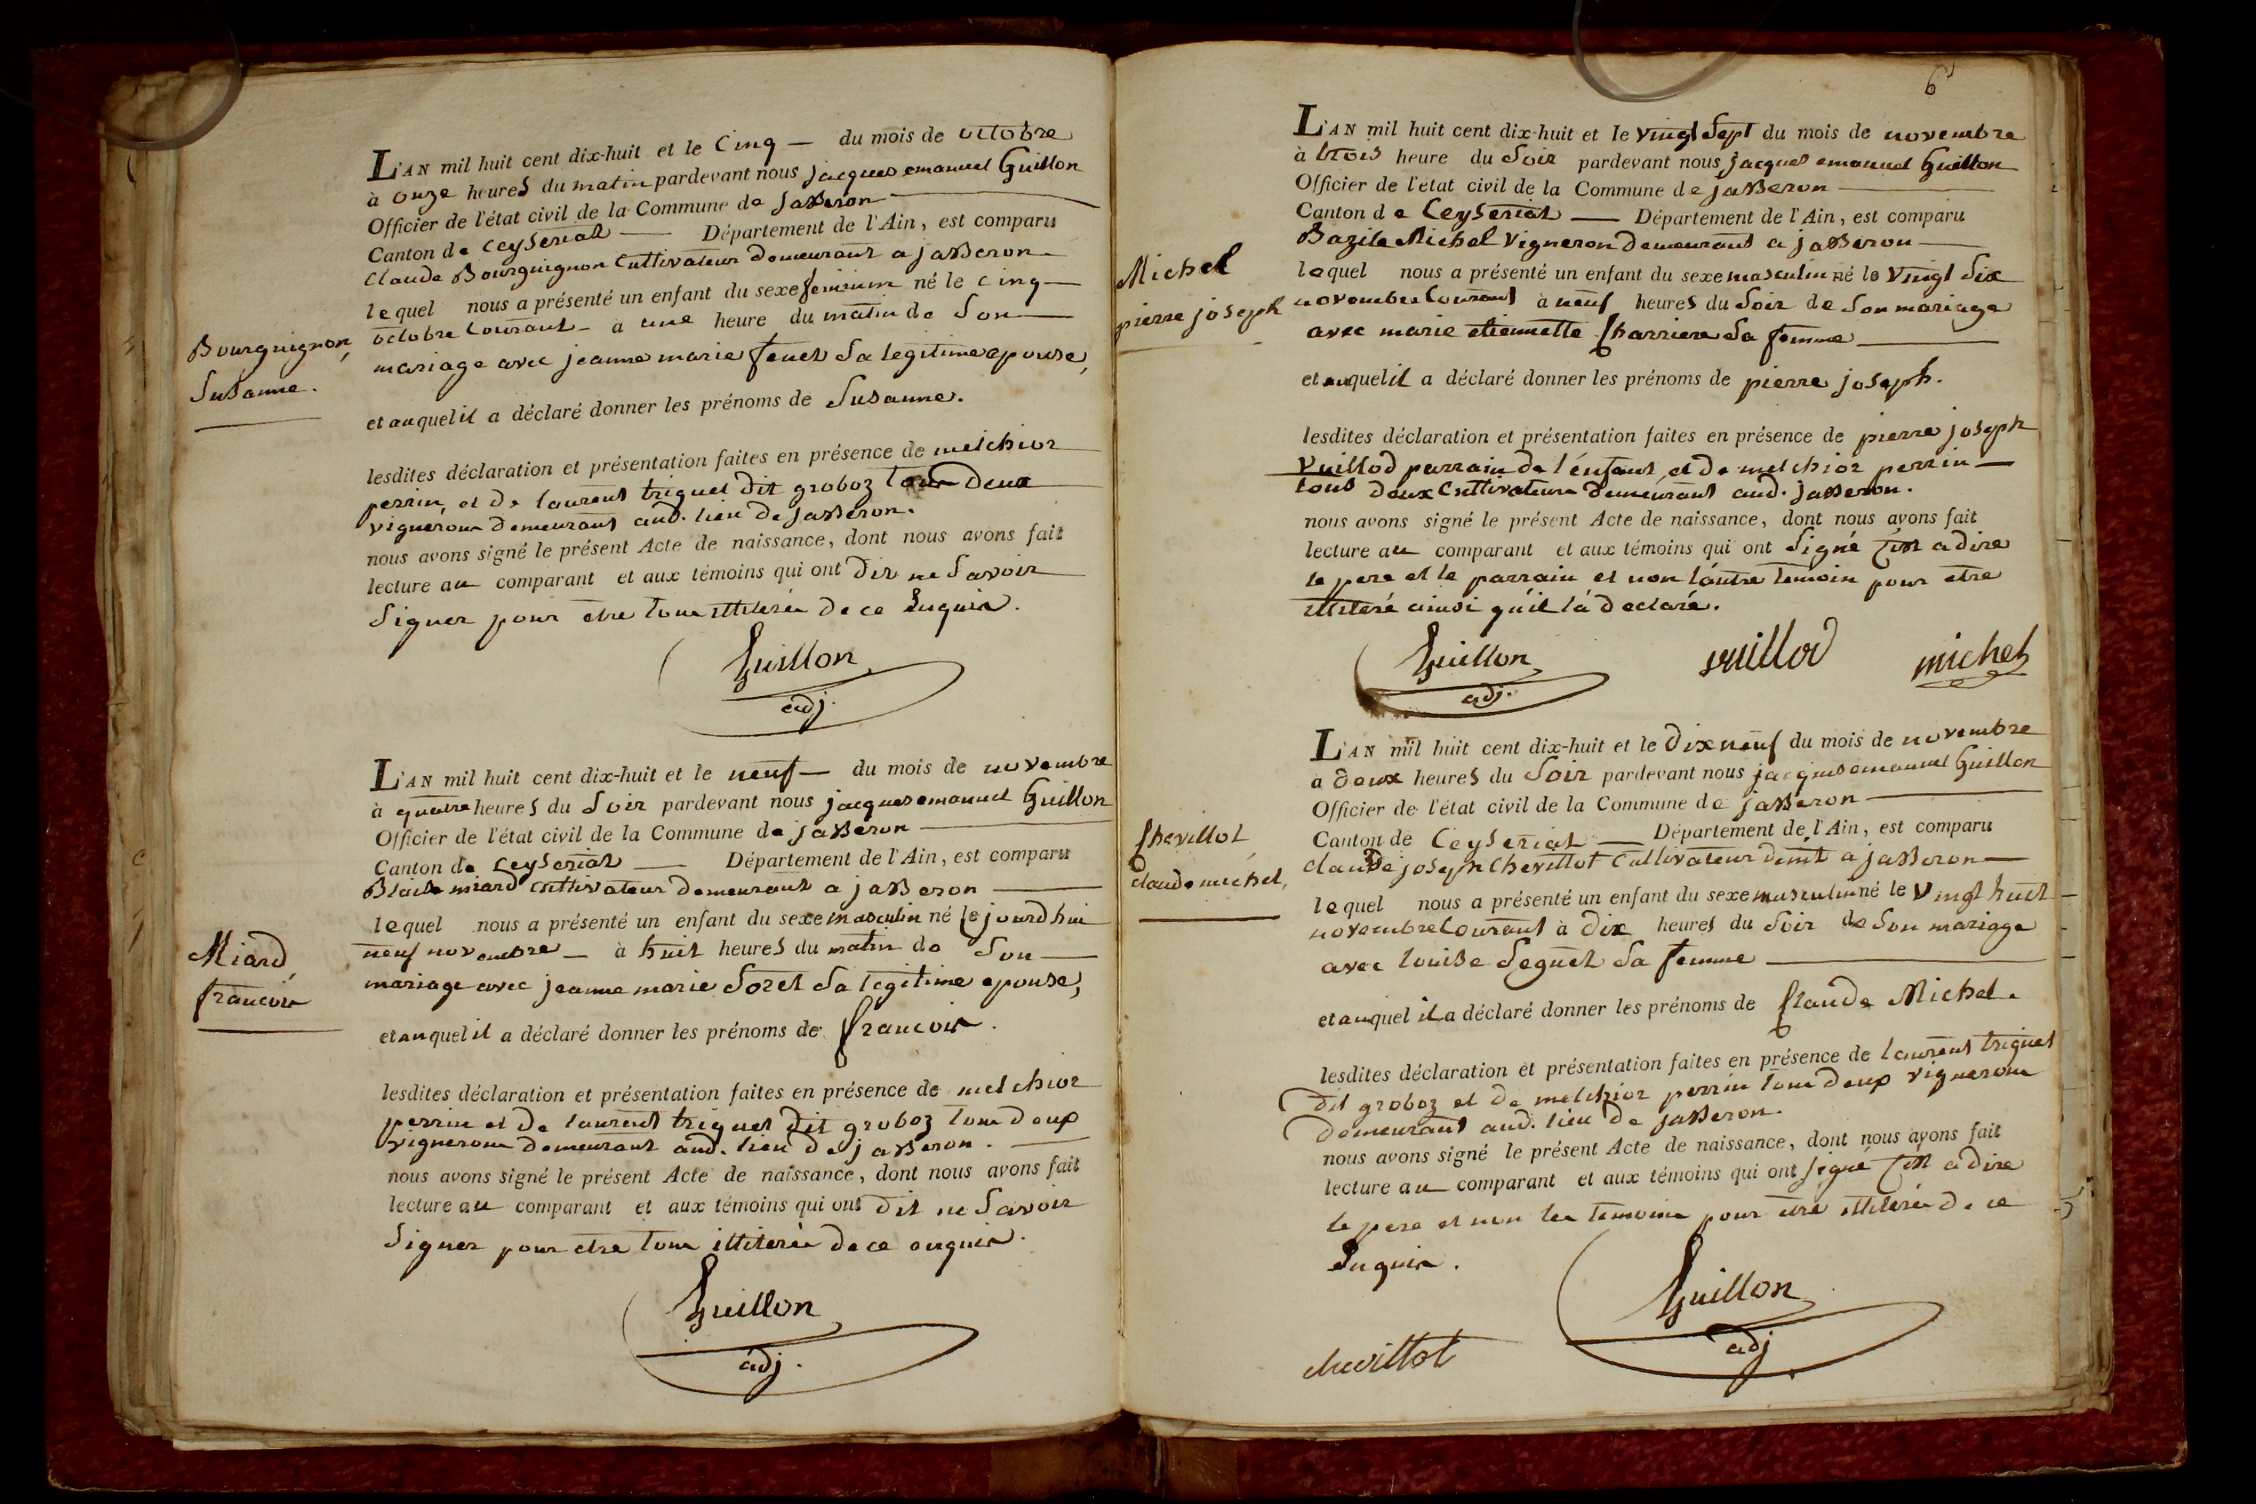 L'AN mil huit cent dix-huit et le Cinq — du mois de octobre
à onze heures du matin pardevant nous jacques emanuel Guillon
Officier de l'état civil de la Commune de jasseron
Canton de Ceyseriat — Département de l'Ain, est comparu
Claude Bourguignon Cultivateur demeurant a jasseron
lequel nous a présenté un enfant du sexe feminin né le cinq
octobre Courant - à une heure du matin de Son
mariage avec jeanne marie sa legitime epouse,
Bourguignon,
Susanne.
et auquel il a déclaré donner les prénoms de Susanne.
lesdites déclaration et présentation faites en présence de melchior
perrin, et de laurent triquet dit groboz tous deux
vignerons demeurant aud. lieu de jasseron.
nous avons signé le présent Acte de naissance, dont nous avons fait
lecture au comparant et aux témoins qui ont dit ne Savoir
Signer pour etre tous illiterés de ce Enquis.
Guillon
adj.
L'AN mil huit cent dix-huit et le neuf — du mois de novembre
à quatre heures du Soir pardevant nous jacques emanuel Guillon
Officier de l'état civil de la Commune de jasseron
Canton de Ceyseriat — Département de l'Ain, est comparu
Blaise miard Cultivateur demeurant a jasseron
lequel nous a présenté un enfant du sexe masculin né le jourdhui
neuf novembre — à huit heures du matin de Son
mariage avec jeanne marie Sozet Sa legitime epouse,
Miard,
francois
et auquel il a déclaré donner les prénoms de francois.
lesdites déclaration et présentation faites en présence de melchior
perrin et de laurent triquet dit groboz tous deux
vignerons demeurant aud. lieu de jasseron.
nous avons signé le présent Acte de naissance, dont nous avons fait
lecture au comparant et aux témoins qui ont dit ne Savoir
Signer pour etre tous illiterés de ce enquis.
Guillon
adj.
6
L'AN mil huit cent dix-huit et le vingt Sept du mois de novembre
à trois heure du Soir pardevant nous jacques emanuel Guillon
Officier de l'état civil de la Commune de jasseron
Canton de Ceyseriat — Département de l'Ain, est comparu
Bazile Michel vigneron demeurant a jasseron
lequel nous a présenté un enfant du sexe masculin né le vingt Six
novembre Courant à neuf heures du Soir de Son mariage
avec marie etiennette Charriere Sa femme
Michel
pierre joseph
et auquel il a déclaré donner les prénoms de pierre joseph.
lesdites déclaration et présentation faites en présence de pierre joseph
Vuillod parrain de l'enfant et de melchior perrin
tous deux Cultivateurs demeurant aud. jasseron.
nous avons signé le présent Acte de naissance, dont nous avons fait
lecture au comparant et aux témoins qui ont Signé C'est adire
le pere et le parrain et non l'autre temoin pour etre
illiteré ainsi qu'il la declaré.
Guillon
adj.
vuillod
michel
L'AN mil huit cent dix-huit et le dix neuf du mois de novembre
à deux heures du Soir pardevant nous jacques emanuel Guillon
Officier de l'état civil de la Commune de jasseron
Canton de Ceyseriat — Département de l'Ain, est comparu
claude joseph Chevillot Cultivateur demt a jasseron
lequel nous a présenté un enfant du sexe masculin né le Vingt huit
novembre Courant à dix heures du Soir de Son mariage
avec louise Seguet Sa femme
Chevillot
claude michel,
et auquel il a déclaré donner les prénoms de Claude Michel.
lesdites déclaration et présentation faites en présence de laurent triquet
dit groboz et de melchior perrin tous deux vignerons
demeurant aud. lieu de jasseron.
nous avons signé le présent Acte de naissance, dont nous avons fait
lecture au comparant et aux témoins qui ont signé C'est adire
le pere et non les temoins pour etre illiterés de ce
Enquis.
Guillon
adj
chevillot